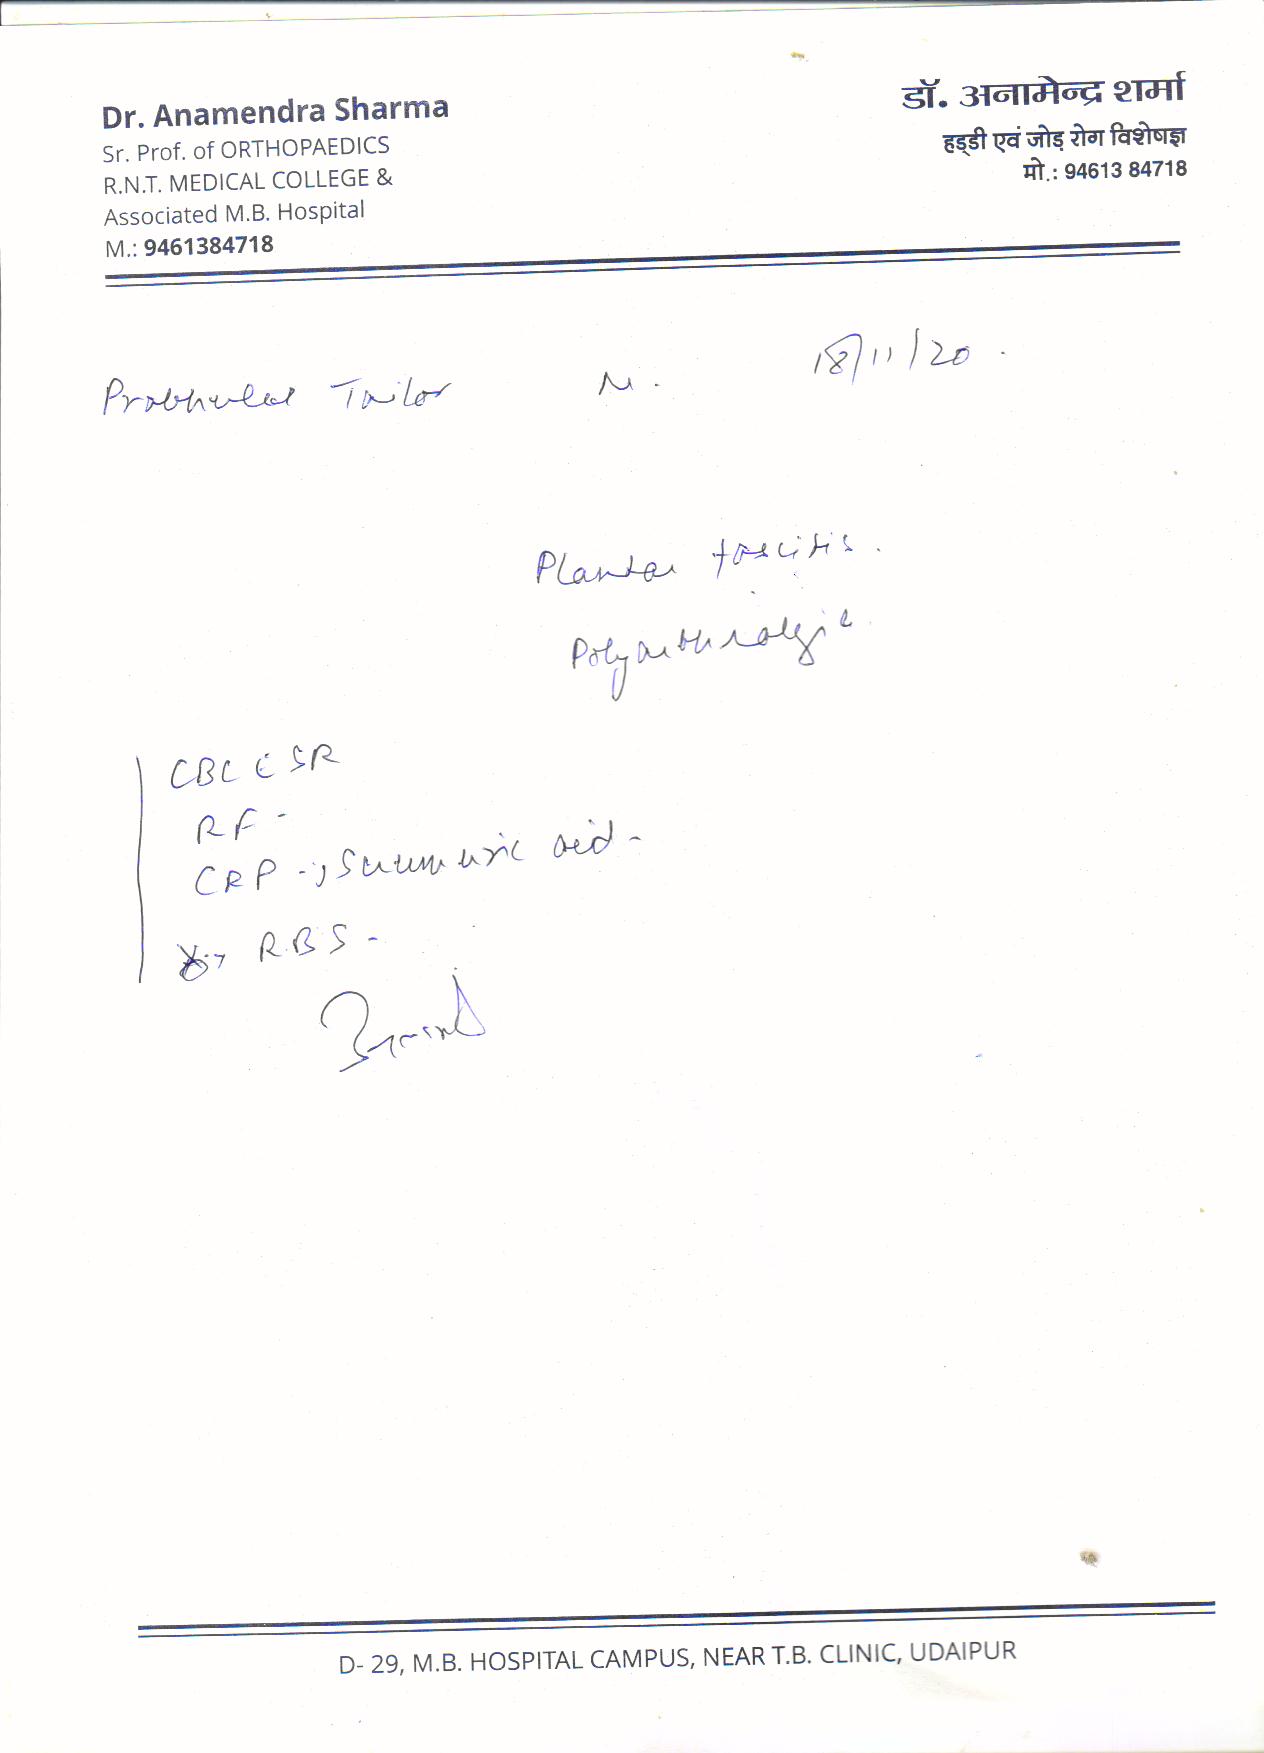 Dr. Anamendra Sharma
Sr. Prof. of ORTHOPAEDICS
R.N.T. MEDICAL COLLEGE &
Associated M.B. Hospital
M.: 9461384718
डॉ. अनामेन्द्र शर्मा
हड्डी एवं जोड़ रोग विशेषज्ञ
मो.: 94613 84718
Prabhulal Tailor M. 18/11/20.
Plantar fascitis.
Polyarthralgia
CBC ESR
RF -
CRP -, Serum uric acid -
RBS -
D- 29, M.B. HOSPITAL CAMPUS, NEAR T.B. CLINIC, UDAIPUR